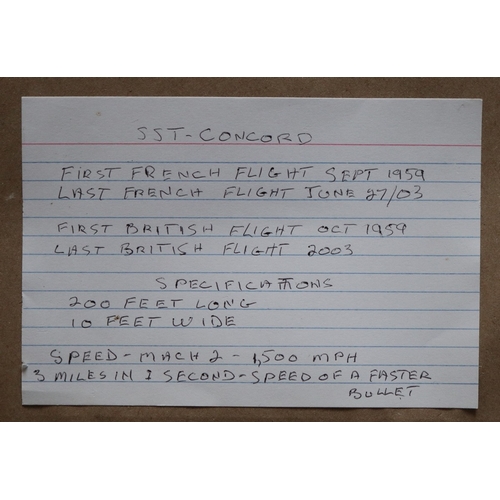 SST-CONCORD
FIRST FRENCH FLIGHT SEPT 1959
LAST FRENCH FLIGHT JUNE 27/03
FIRST BRITISH FLIGHT OCT 1959
LAST BRITISH FLIGHT 2003
SPECIFICATIONS
200 FEET LONG
10 FEET WIDE
SPEED-MACH 2-1,500 MPH
3 MILES IN 1 SECOND-SPEED OF A FASTER
BULLET